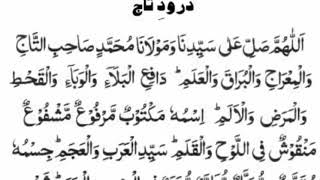 درودِ تاج
اَللّٰهُمَّ صَلِّ عَلٰى سَيِّدِنَا وَمَوْلَانَا مُحَمَّدٍ صَاحِبِ التَّاجِ
وَالْمِعْرَاجِ وَالْبُرَاقِ وَالْعَلَمِ ؕ دَافِعِ الْبَلَآءِ وَالْوَبَآءِ وَالْقَحْطِ
وَالْمَرَضِ وَالْاَلَمِ ؕ اِسْمُهٗ مَكْتُوْبٌ مَّرْفُوْعٌ مَّشْفُوْعٌ
مَّنْقُوْشٌ فِی اللَّوْحِ وَالْقَلَمِ ؕ سَيِّدِ الْعَرَبِ وَالْعَجَمِ ؕ جِسْمُهٗ